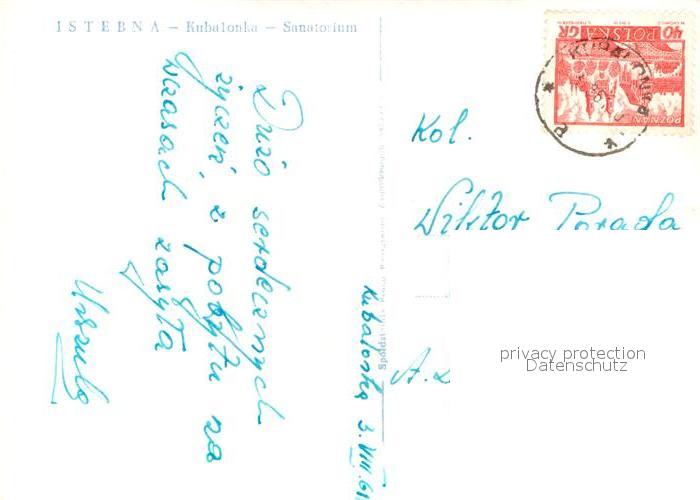 ISTEBNA – Kubalonka – Sanatorium
Dużo serdecznych
życzeń z pobytu na
wczasach zasyła
Urszula
Kubalonka 3.VIII.61
Kol.
Wiktor Porada
A.
40 POLSKA GR
POZNAŃ
privacy protection
Datenschutz